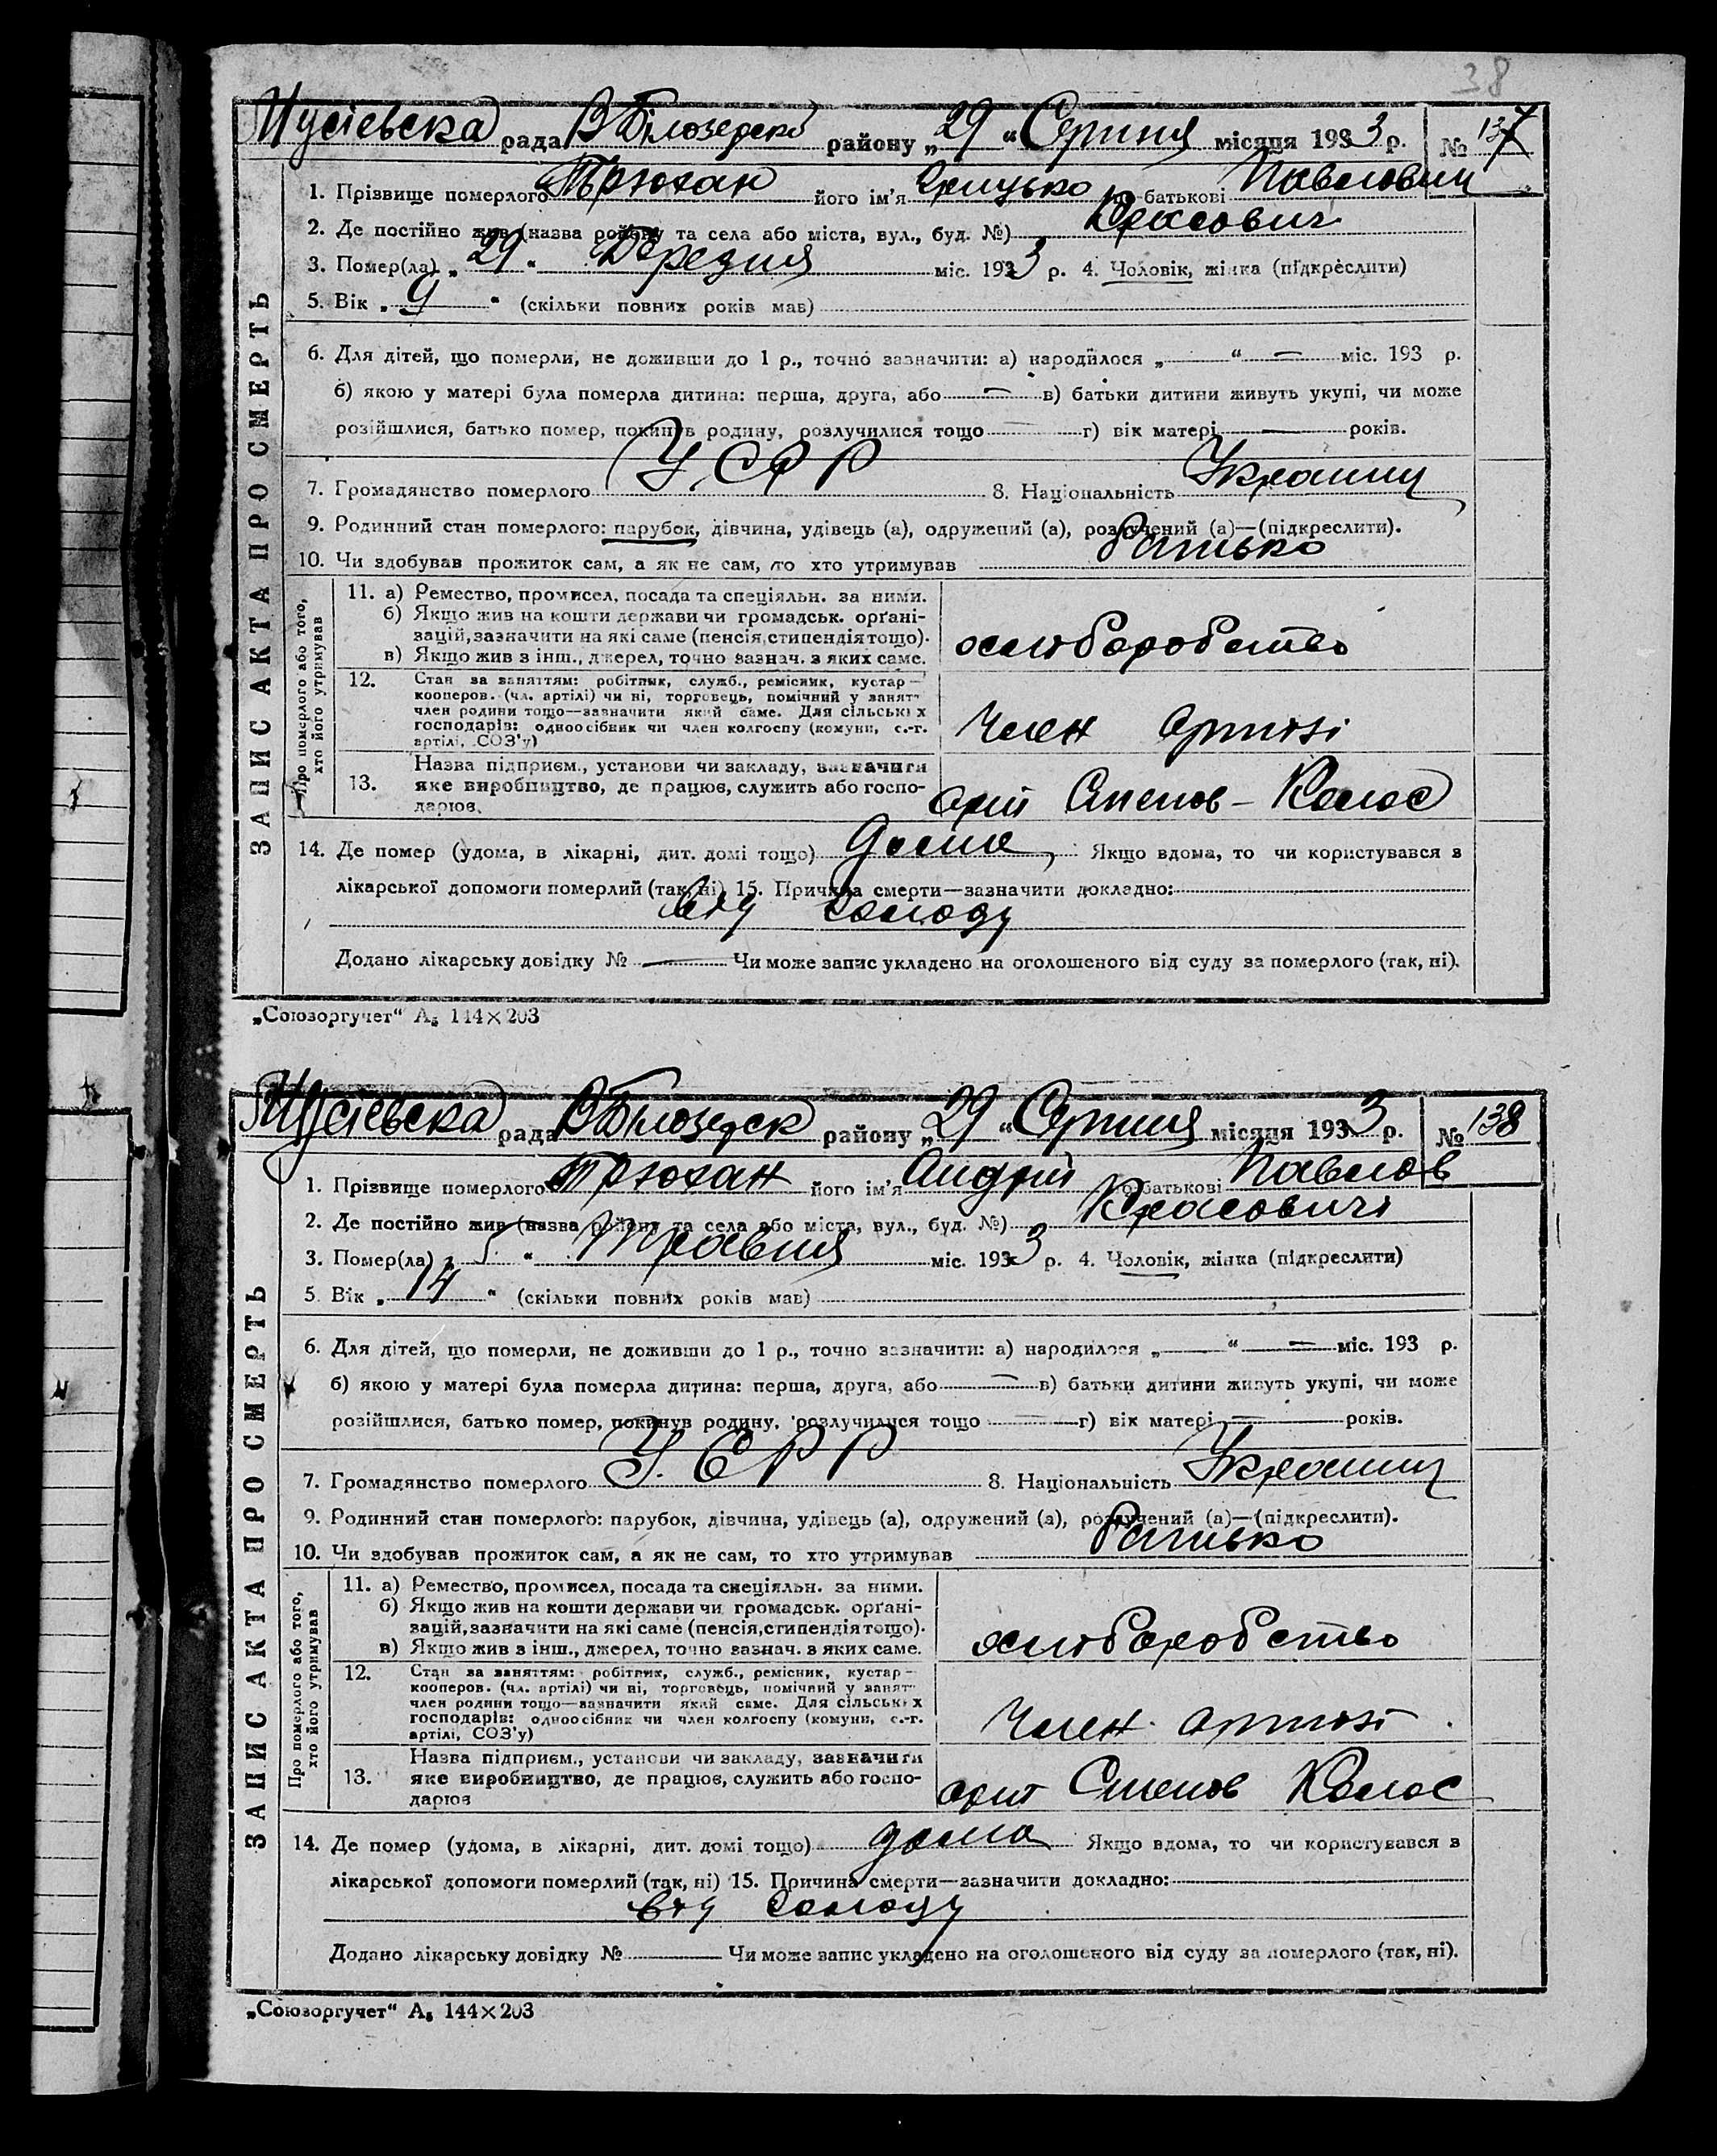 38
Мусіевска рада В Білозерско району „29“ Серпня місяця 1933 р. № 137
1. Прізвище померлого Трюхан його ім'я Грицько по батькові Павлович
2. Де постійно жив (назва району та села або міста, вул., буд. №) Красович
3. Помер(ла) „29“ Березня міс. 1933 р. 4. Чоловік, жінка (підкреслити)
5. Вік „9“ (скільки повних років мав)
6. Для дітей, що померли, не доживши до 1 р., точно зазначити: а) народилося „—“ — міс. 193 р.
б) якою у матері була померла дитина: перша, друга, або — в) батьки дитини живуть укупі, чи може
розійшлися, батько помер, покинув родину, розлучилися тощо — г) вік матері — років.
7. Громадянство померлого УСРР 8. Національність Украинц
9. Родинний стан померлого: парубок, дівчина, удівець (а), одружений (а), розлучений (а)—(підкреслити).
10. Чи здобував прожиток сам, а як не сам, то хто утримував Батько
ЗАПИС АКТА ПРО СМЕРТЬ
Про померлого або того,
хто його утримував
11. а) Ремество, промисел, посада та спеціяльн. за ними.
б) Якщо жив на кошти держави чи громадськ. орґані-
зацій, зазначити на які саме (пенсія, стипендія тощо).
в) Якщо жив з інш., джерел, точно зазнач. з яких саме.
хлюборобство
12. Стан за заняттям: робітник, служб., ремісник, кустар—
кооперов. (чл. артілі) чи ні, торговець, помічний у занят-
член родини тощо—зазначити який саме. Для сільських
господарів: одноосібник чи член колгоспу (комуни, с.-г.
артілі, СОЗ'у)
Член артюлі
13. Назва підприєм., установи чи закладу, зазначити
яке виробництво, де працює, служить або госпо-
дарює.
Арт Степов - Колос
14. Де помер (удома, в лікарні, дит. домі тощо) дома, Якщо вдома, то чи користувався з
лікарської допомоги померлий (так, ні) 15. Причина смерти—зазначити докладно:
вту голоду
Додано лікарську довідку № — Чи може запис укладено на оголошеного від суду за померлого (так, ні).
„Союзоргучет“ А₅ 144×203
Мусіевска рада В Білозерск району „29“ Серпня місяця 1933 р. № 138
1. Прізвище померлого Трюхан його ім'я Андрій по батькові Павлов
2. Де постійно жив (назва району та села або міста, вул., буд. №) Красовичі
3. Помер(ла) „5“ Травня міс. 1933 р. 4. Чоловік, жінка (підкреслити)
5. Вік „14“ (скільки повних років мав)
6. Для дітей, що померли, не доживши до 1 р., точно зазначити: а) народилося „—“ — міс. 193 р.
б) якою у матері була померла дитина: перша, друга, або — в) батьки дитини живуть укупі, чи може
розійшлися, батько помер, покинув родину, розлучилися тощо — г) вік матері — років.
7. Громадянство померлого У.СРР 8. Національність Украинц
9. Родинний стан померлого: парубок, дівчина, удівець (а), одружений (а), розлучений (а)—(підкреслити).
10. Чи здобував прожиток сам, а як не сам, то хто утримував Батько
ЗАПИС АКТА ПРО СМЕРТЬ
Про померлого або того,
хто його утримував
11. а) Ремество, промисел, посада та спеціяльн. за ними.
б) Якщо жив на кошти держави чи громадськ. орґані-
зацій, зазначити на які саме (пенсія, стипендія тощо).
в) Якщо жив з інш., джерел, точно зазнач. з яких саме.
хлюборобство
12. Стан за заняттям: робітник, служб., ремісник, кустар—
кооперов. (чл. артілі) чи ні, торговець, помічний у занят-
член родини тощо—зазначити який саме. Для сільських
господарів: одноосібник чи член колгоспу (комуни, с.-г.
артілі, СОЗ'у)
Член артюлі
13. Назва підприєм., установи чи закладу, зазначити
яке виробництво, де працює, служить або госпо-
дарює
арт Степов Колос
14. Де помер (удома, в лікарні, дит. домі тощо) дома Якщо вдома, то чи користувався з
лікарської допомоги померлий (так, ні) 15. Причина смерти—зазначити докладно:
вту голоду
Додано лікарську довідку № — Чи може запис укладено на оголошеного від суду за померлого (так, ні).
„Союзоргучет“ А₅ 144×203